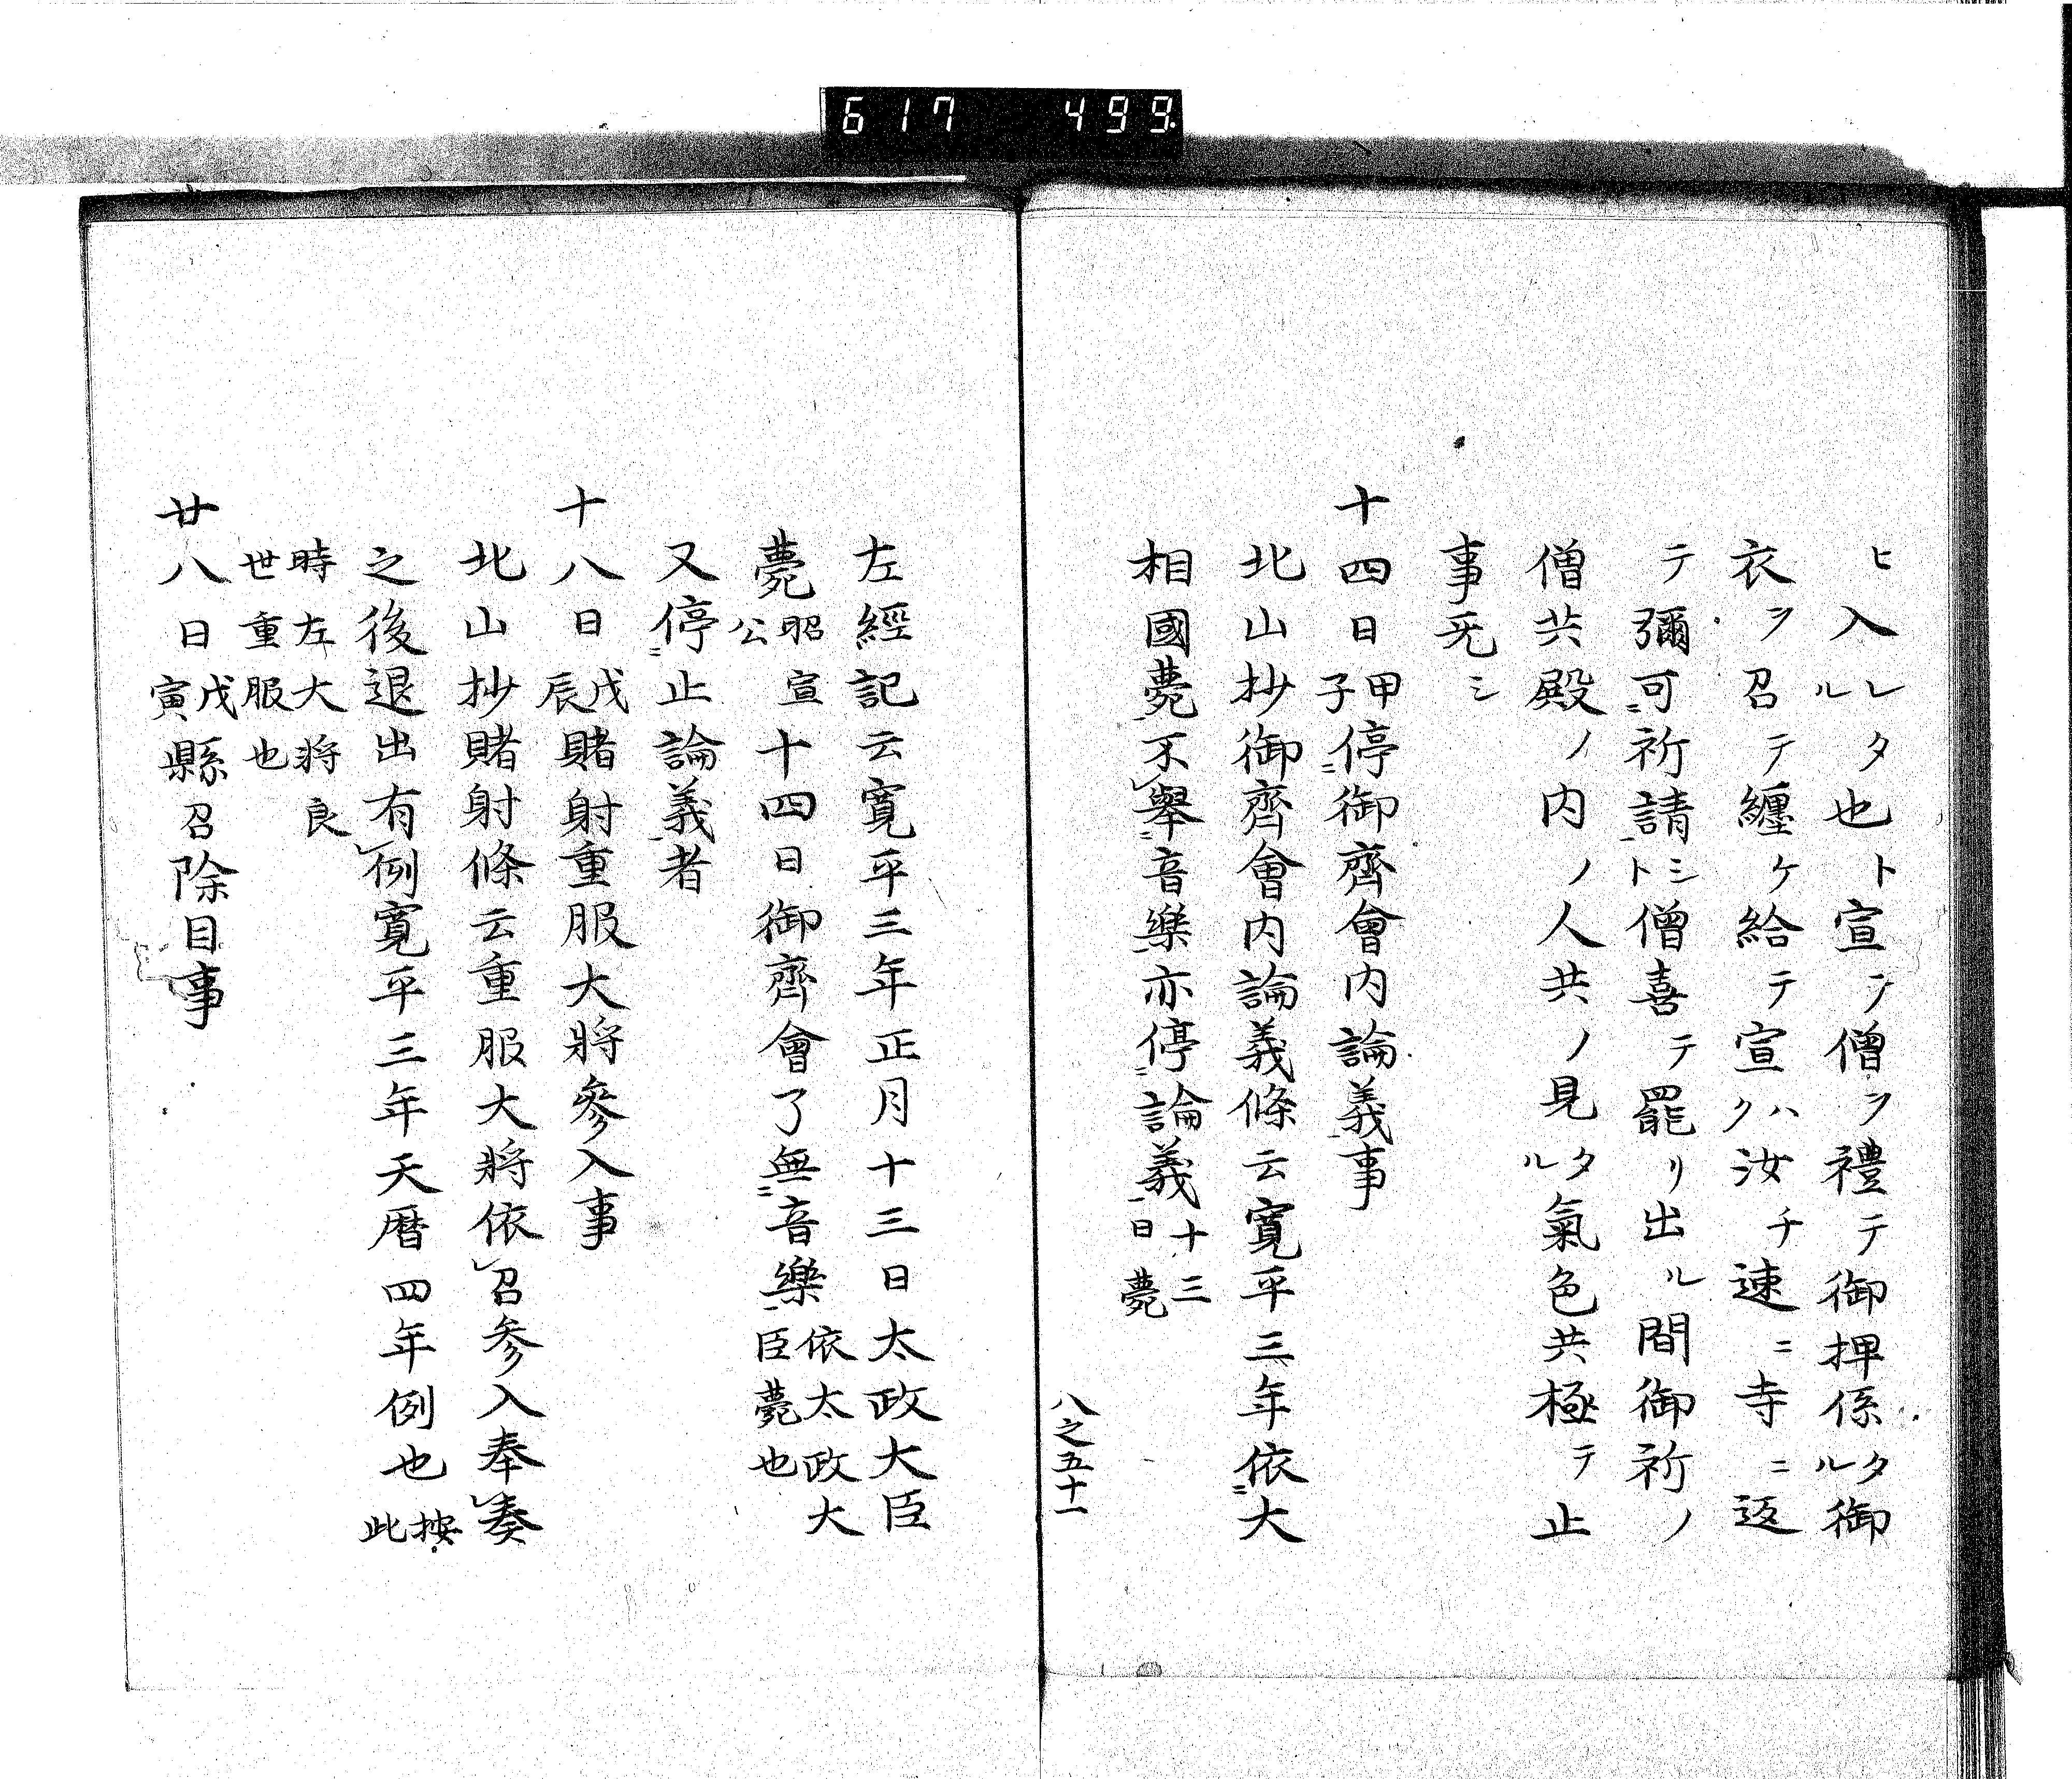 617 499
ヒ入レタル也ト宣フ僧ヲ禮テ御押係タル御
衣ヲ召テ纏ケ給テ宣ハク汝チ速ニ寺ニ返
テ彌可祈請トシ僧喜テ罷リ出ル間御祈ノ
僧共殿ノ内ノ人共ノ見タル氣色共極テ止
事旡シ
十四日甲子停御齊會内論義事
北山抄御齊會内論義條云寛平三年依大
相國薨不擧音樂亦停論義十三日薨
八之五十一
左經記云寛平三年正月十三日太政大臣
薨昭宣公十四日御齊會了無音樂依太政大臣薨也
又停止論義者
十八日戊辰賭射重服大將參入事
北山抄賭射條云重服大將依召参入奉奏
之後退出有例寛平三年天暦四年例也按此
時左大將良世重服也
廿八日戊寅縣召除目事